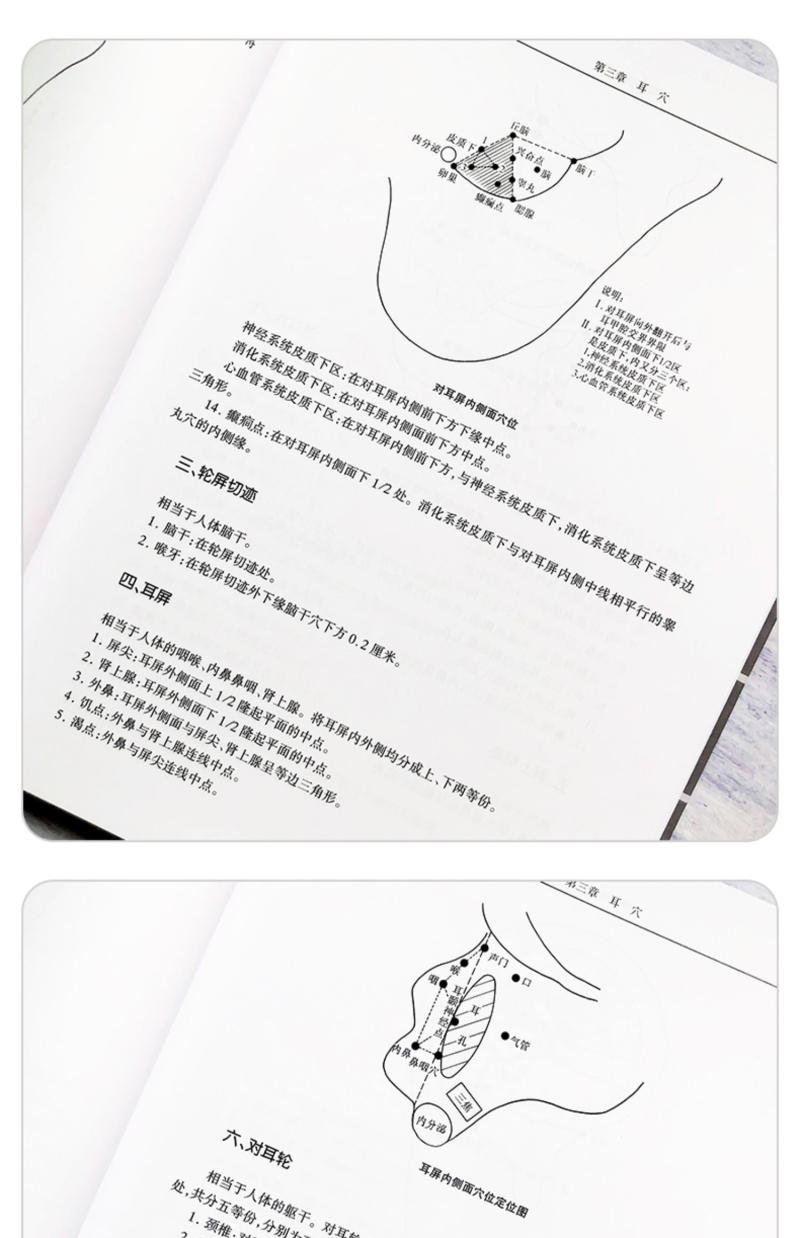 第三章 耳 穴
丘脑
皮质下
1
内分泌
兴奋点
脑
脑干
3
2
卵巢
睾丸
癫痫点
腮腺
说明:
I. 对耳屏向外翻开后与
耳甲腔交界界限
II. 对耳屏内侧面下1/2区
是皮质下,内又分三个区:
1.神经系统皮质下区
2.消化系统皮质下区
3.心血管系统皮质下区
对耳屏内侧面穴位
神经系统皮质下区:在对耳屏内侧前下方下缘中点。
消化系统皮质下区:在对耳屏内侧面前下方中点。
心血管系统皮质下区:在对耳屏内侧前下方,与神经系统皮质下,消化系统皮质下呈等边
三角形。
14. 癫痫点:在对耳屏内侧面下 1/2 处。消化系统皮质下与对耳屏内侧中线相平行的睾
丸穴的内侧缘。
三、轮屏切迹
相当于人体脑干。
1. 脑干:在轮屏切迹处。
2. 喉牙:在轮屏切迹外下缘脑干穴下方 0.2 厘米。
四、耳屏
相当于人体的咽喉、内鼻鼻咽、肾上腺。将耳屏内外侧均分成上、下两等份。
1. 屏尖:耳屏外侧面上 1/2 隆起平面的中点。
2. 肾上腺:耳屏外侧面下 1/2 隆起平面的中点。
3. 外鼻:耳屏外侧面与屏尖、肾上腺呈等边三角形。
4. 饥点:外鼻与肾上腺连线中点。
5. 渴点:外鼻与屏尖连线中点。
第三章 耳 穴
声门
喉
口
咽
耳颞神经点
耳孔
气管
内鼻
鼻咽穴
三焦
内分泌
耳屏内侧面穴位定位图
六、对耳轮
相当于人体的躯干。对耳轮
处,共分五等份,分别为
1. 颈椎:对